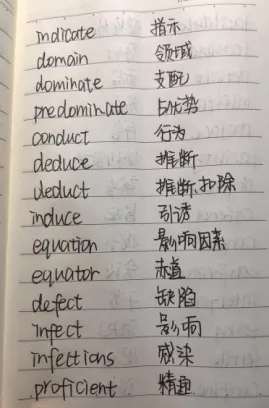 indicate 指示
domain 领域
dominate 支配
predominate 占优势
conduct 行为
deduce 推断
deduct 推断,扣除
induce 引诱
equation 影响因素
equator 赤道
defect 缺陷
infect 影响
infections 感染
proficient 精通